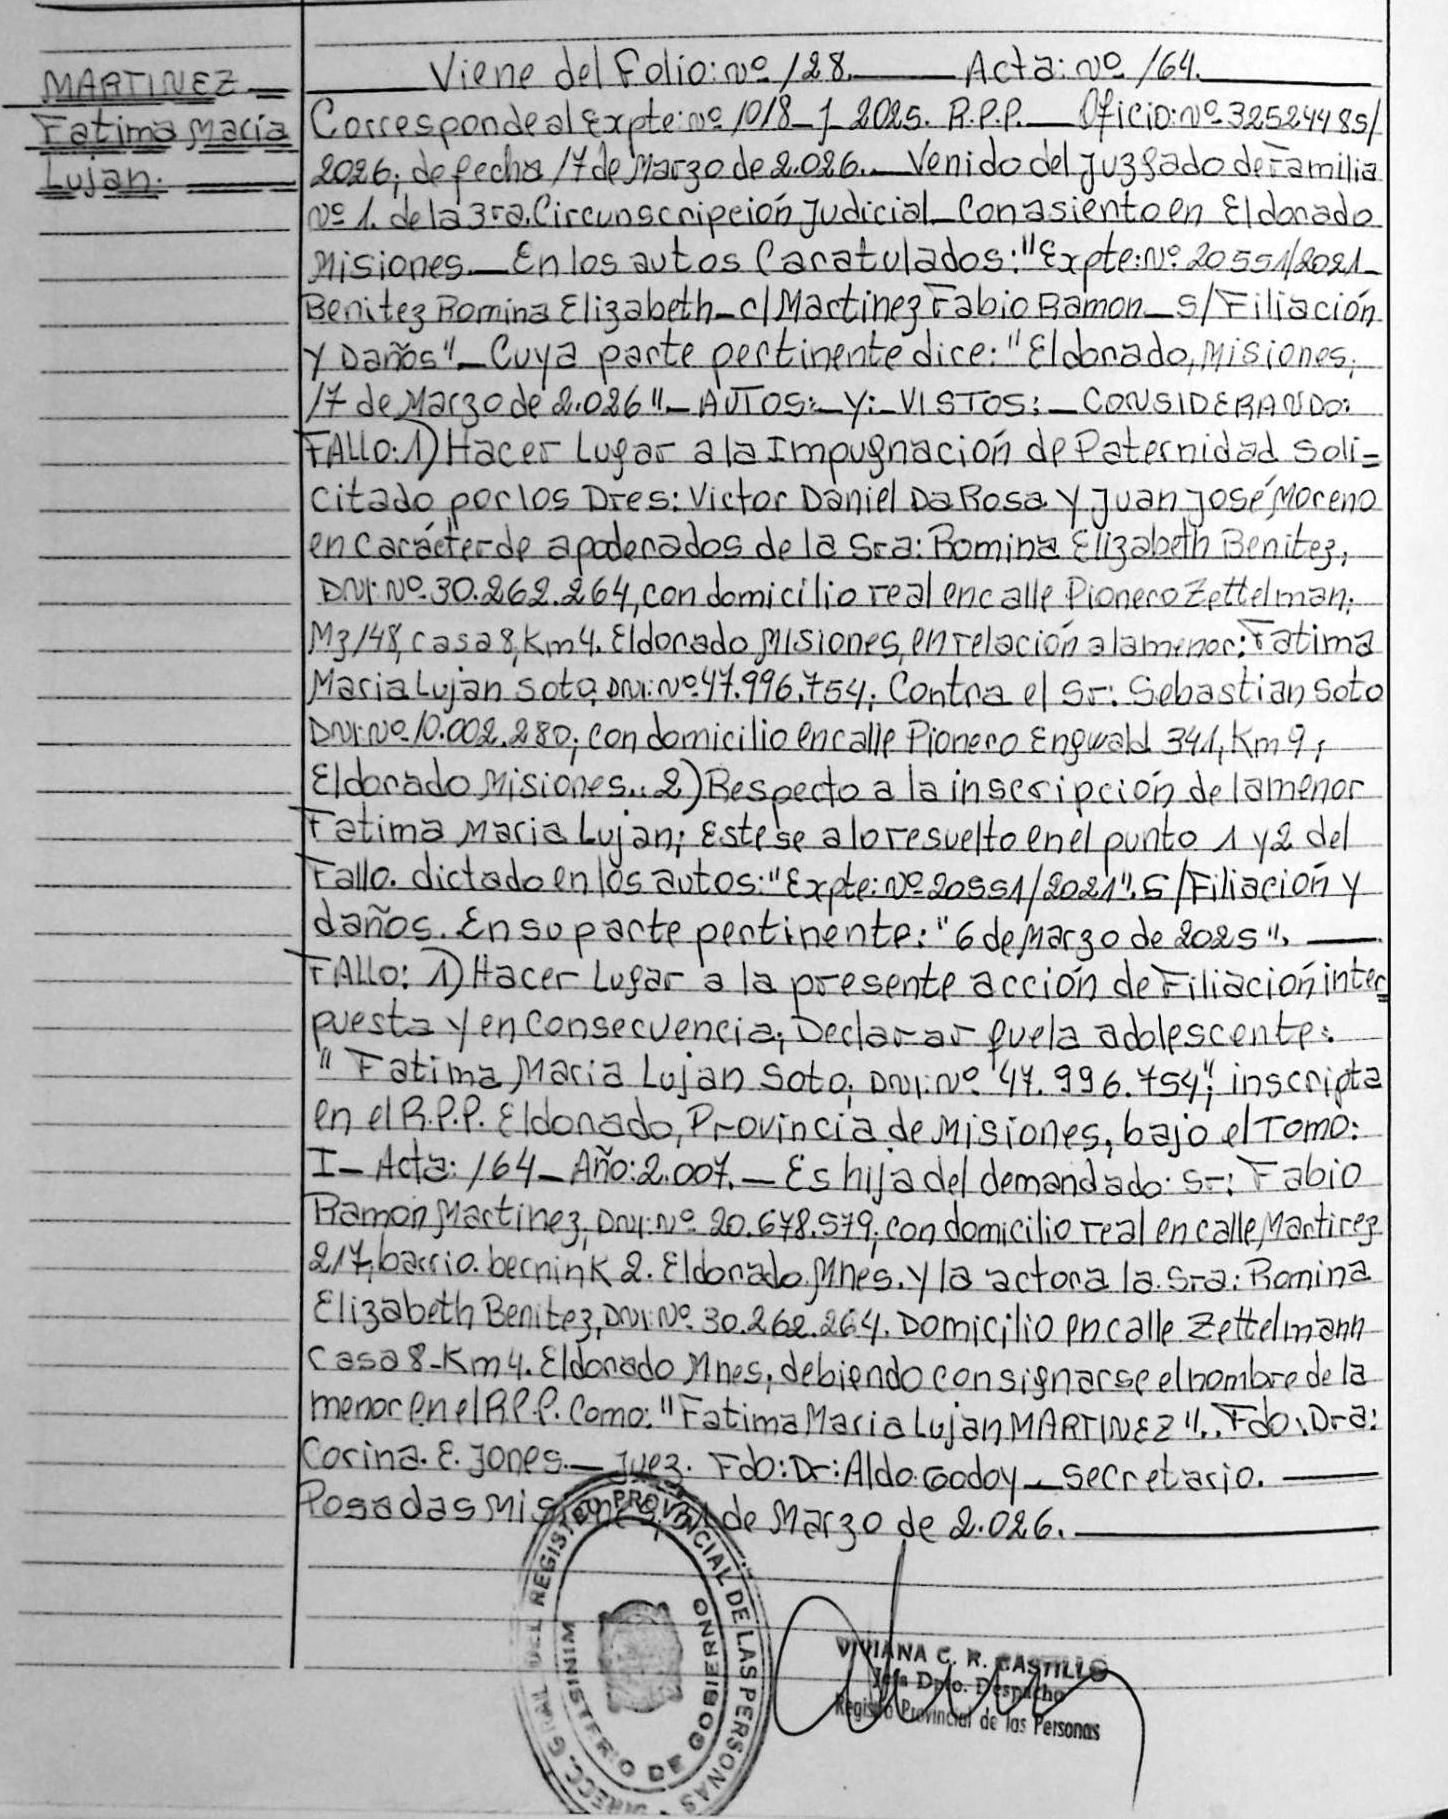 MARTINEZ
Fatima Maria
Lujan.
Viene del Folio: nº 128. Acta: nº 164.
Corresponde al Expte: nº 1018-J-2025. R.P.P. Oficio: nº 32524485/
2026; de fecha 17 de Marzo de 2.026. Venido del Juzgado de Familia
Nº 1. de la 3ra. Circunscripción Judicial Con asiento en Eldorado
Misiones. En los autos Caratulados: "Expte: Nº 20551/2021
Benitez Romina Elizabeth c/ Martinez Fabio Ramon s/ Filiación
Y Daños" Cuya parte pertinente dice: "Eldorado, Misiones,
17 de Marzo de 2.026" AUTOS: Y: VISTOS: CONSIDERANDO:
FALLO: 1) Hacer Lugar a la Impugnación de Paternidad Soli=
citado por los Dres: Victor Daniel Da Rosa y Juan José Moreno
en carácter de apoderados de la Sra: Romina Elizabeth Benitez,
DNI: Nº 30.262.264, con domicilio real en calle Pionero Zettelman,
Mz 148, casa 8, Km 4. Eldorado Misiones, en relación a la menor: Fatima
Maria Lujan Soto, DNI: Nº 47.996.754; Contra el Sr: Sebastian Soto
DNI: Nº 10.002.280; con domicilio en calle Pionero Engwald 341, Km 9,
Eldorado Misiones.. 2) Respecto a la inscripción de la menor
Fatima Maria Lujan; Estese a lo resuelto en el punto 1 y 2 del
Fallo. dictado en los autos: "Expte: Nº 20551/2021". S/Filiación y
daños. En su parte pertinente: "6 de Marzo de 2025".
FALLO: 1) Hacer Lugar a la presente acción de Filiación inter=
puesta y en Consecuencia; Declarar que la adolescente:
"Fatima Maria Lujan Soto, DNI: Nº 47.996.754", inscripta
en el R.P.P. Eldorado, Provincia de Misiones, bajo el Tomo:
I- Acta: 164- Año: 2.007. Es hija del demandado: Sr: Fabio
Ramon Martinez, DNI: Nº 20.678.579; con domicilio real en calle Martirez
217, barrio. bernink 2. Eldorado. Mnes. y la actora la Sra: Romina
Elizabeth Benitez, DNI: Nº 30.262.264. Domicilio en calle Zettelmann
Casa 8-Km 4. Eldorado Mnes, debiendo consignarse el nombre de la
menor en el R.P.P. Como: "Fatima Maria Lujan MARTINEZ".. Fdo: Dra:
Corina. E. Jones. Juez. Fdo: Dr: Aldo Godoy Secretario.
Posadas Misiones, de Marzo de 2.026.
DIRECC. GRAL DEL REGISTRO PROVINCIAL DE LAS PERSONAS
MINISTERIO DE GOBIERNO
VIVIANA C. R. CASTILLO
Jefa Dpto. Despacho
Registro Provincial de las Personas